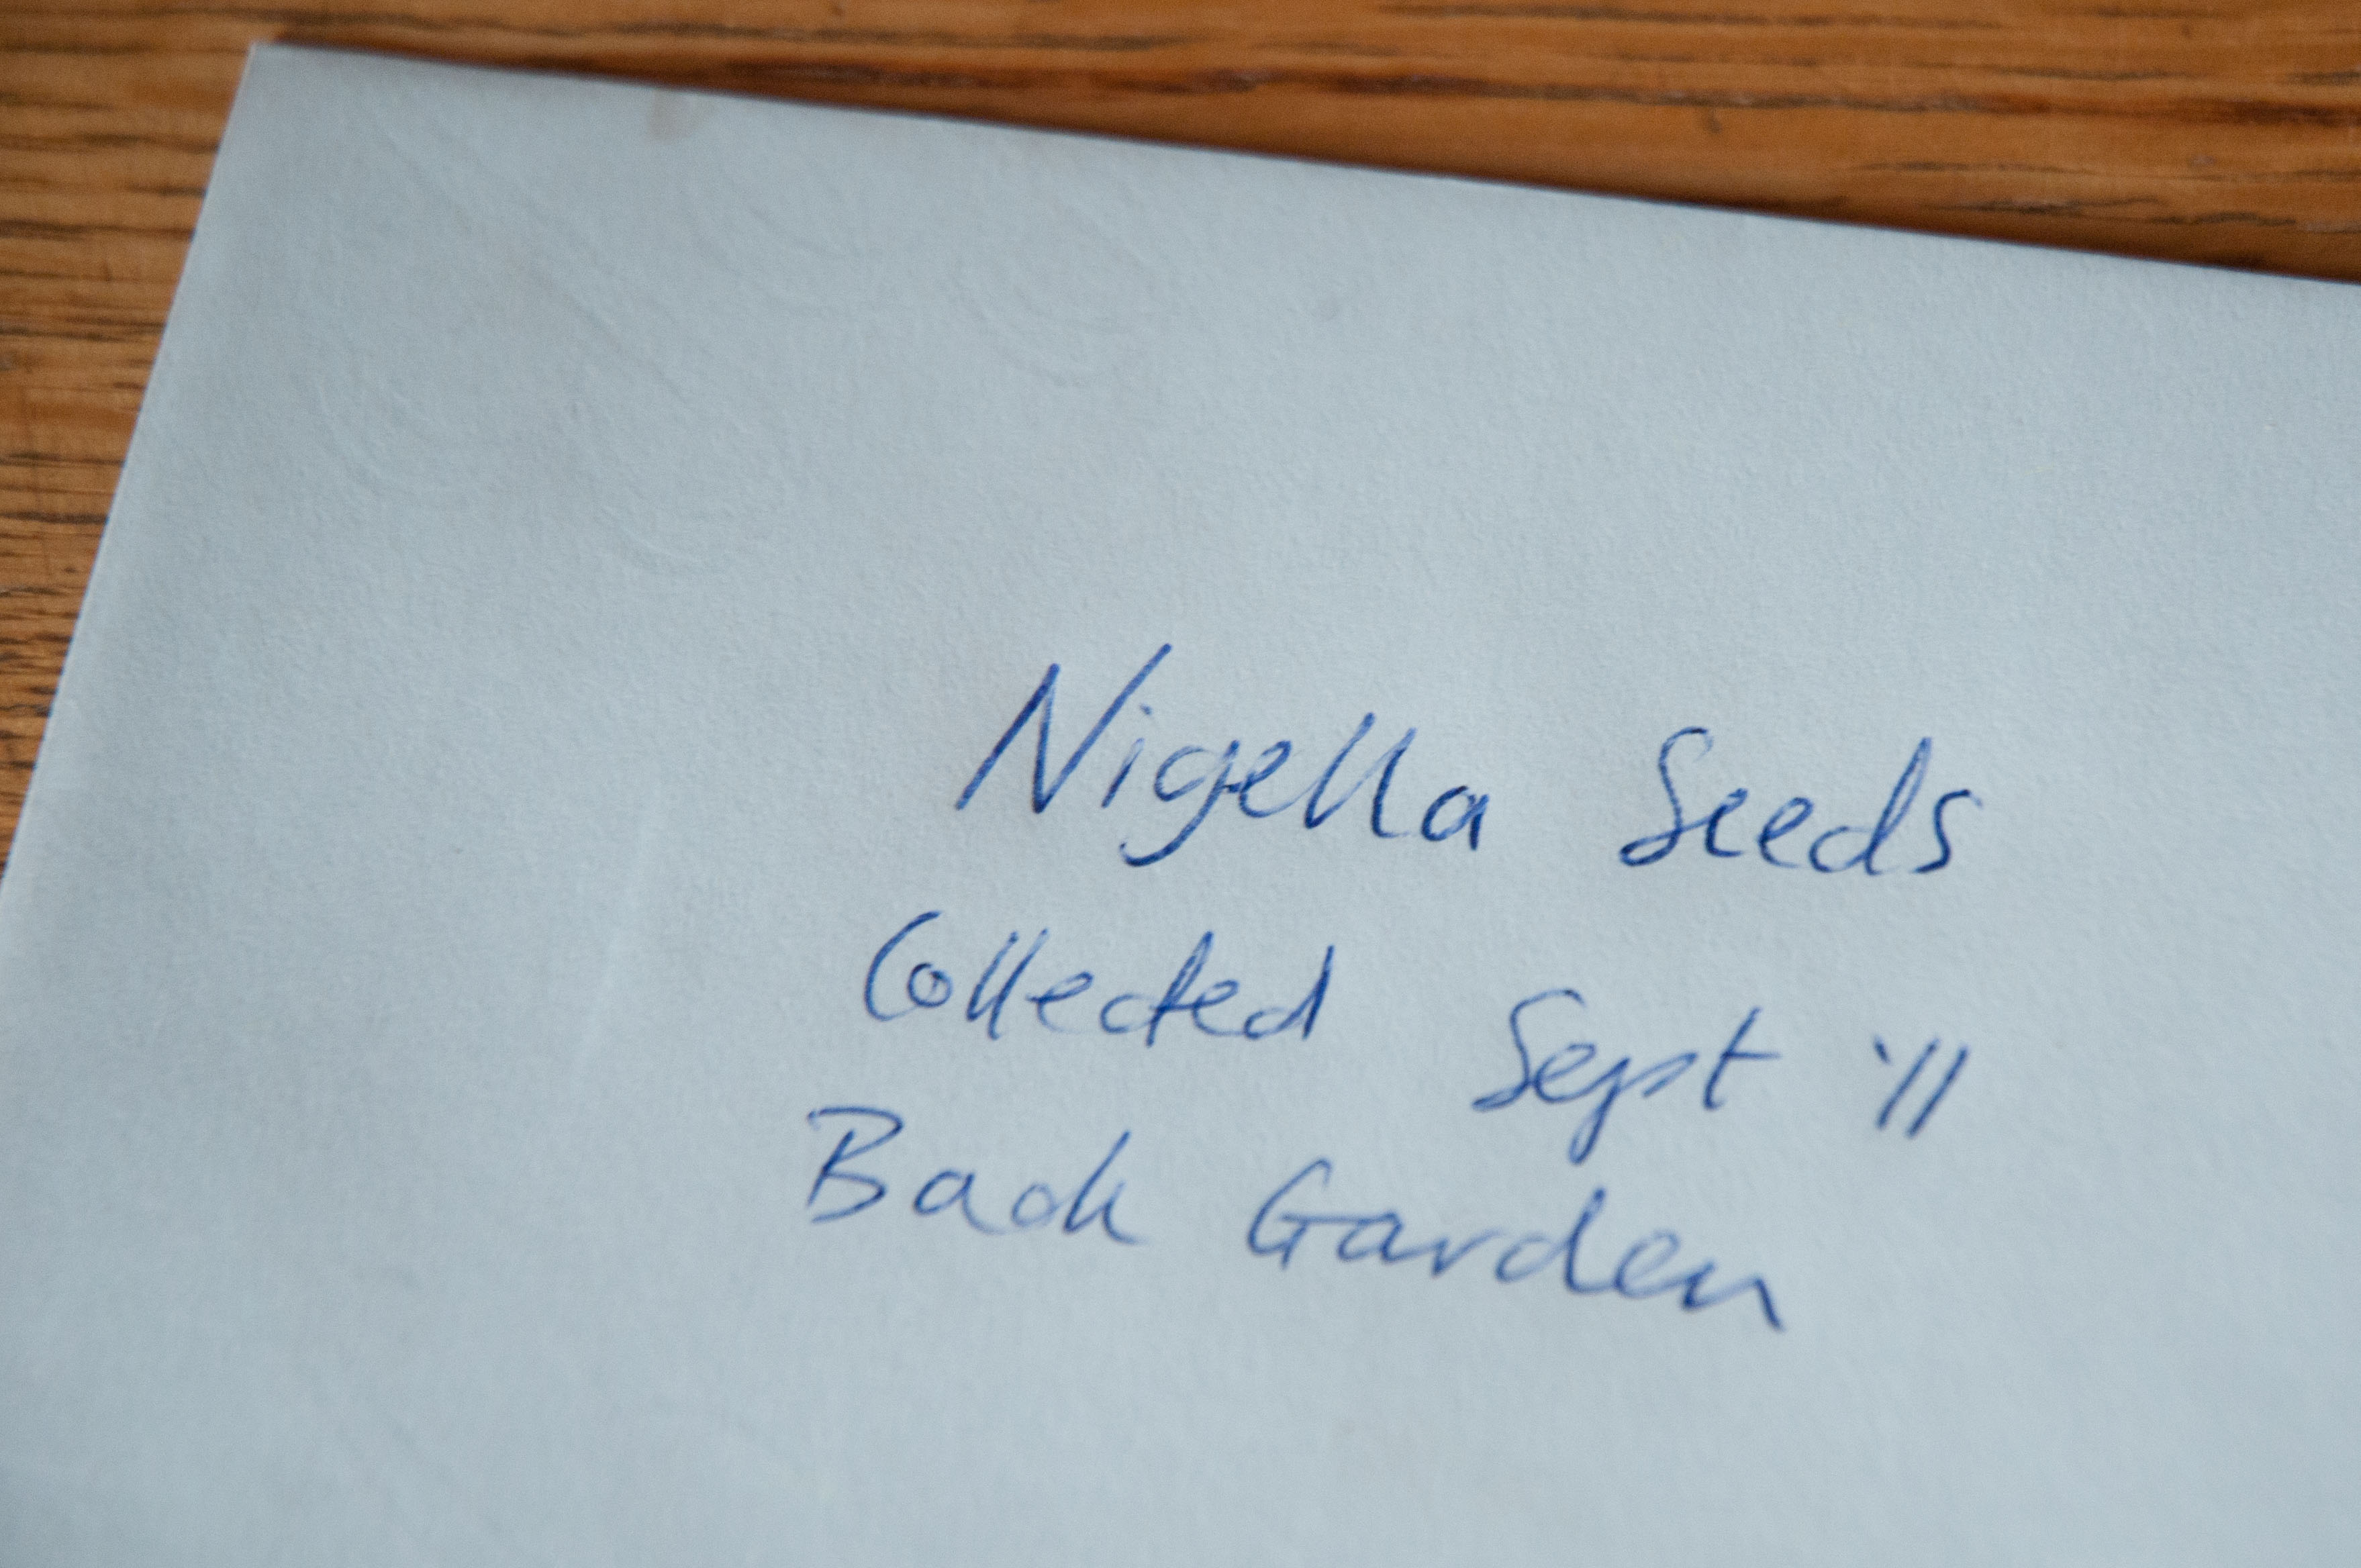 Nigella Seeds
Collected Sept '11
Back Garden